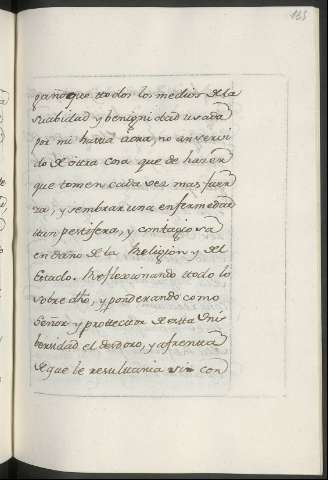 165
gaño que todos los medios de la
suabidad y benignidad usada
por mi hasta aora, no an servi
do de otra cosa que de hacer
que tomen cada vez mas fuer
za, y sembrar una enfermedad
tan pestifera, y contagiosa
en daño de la Religion y del
Estado. Reflexionando todo lo
sobre dho, y ponderando como
Señor y protector de esta Uni
bersidad el desdoro, y afrenta
de que le resultaria sin con